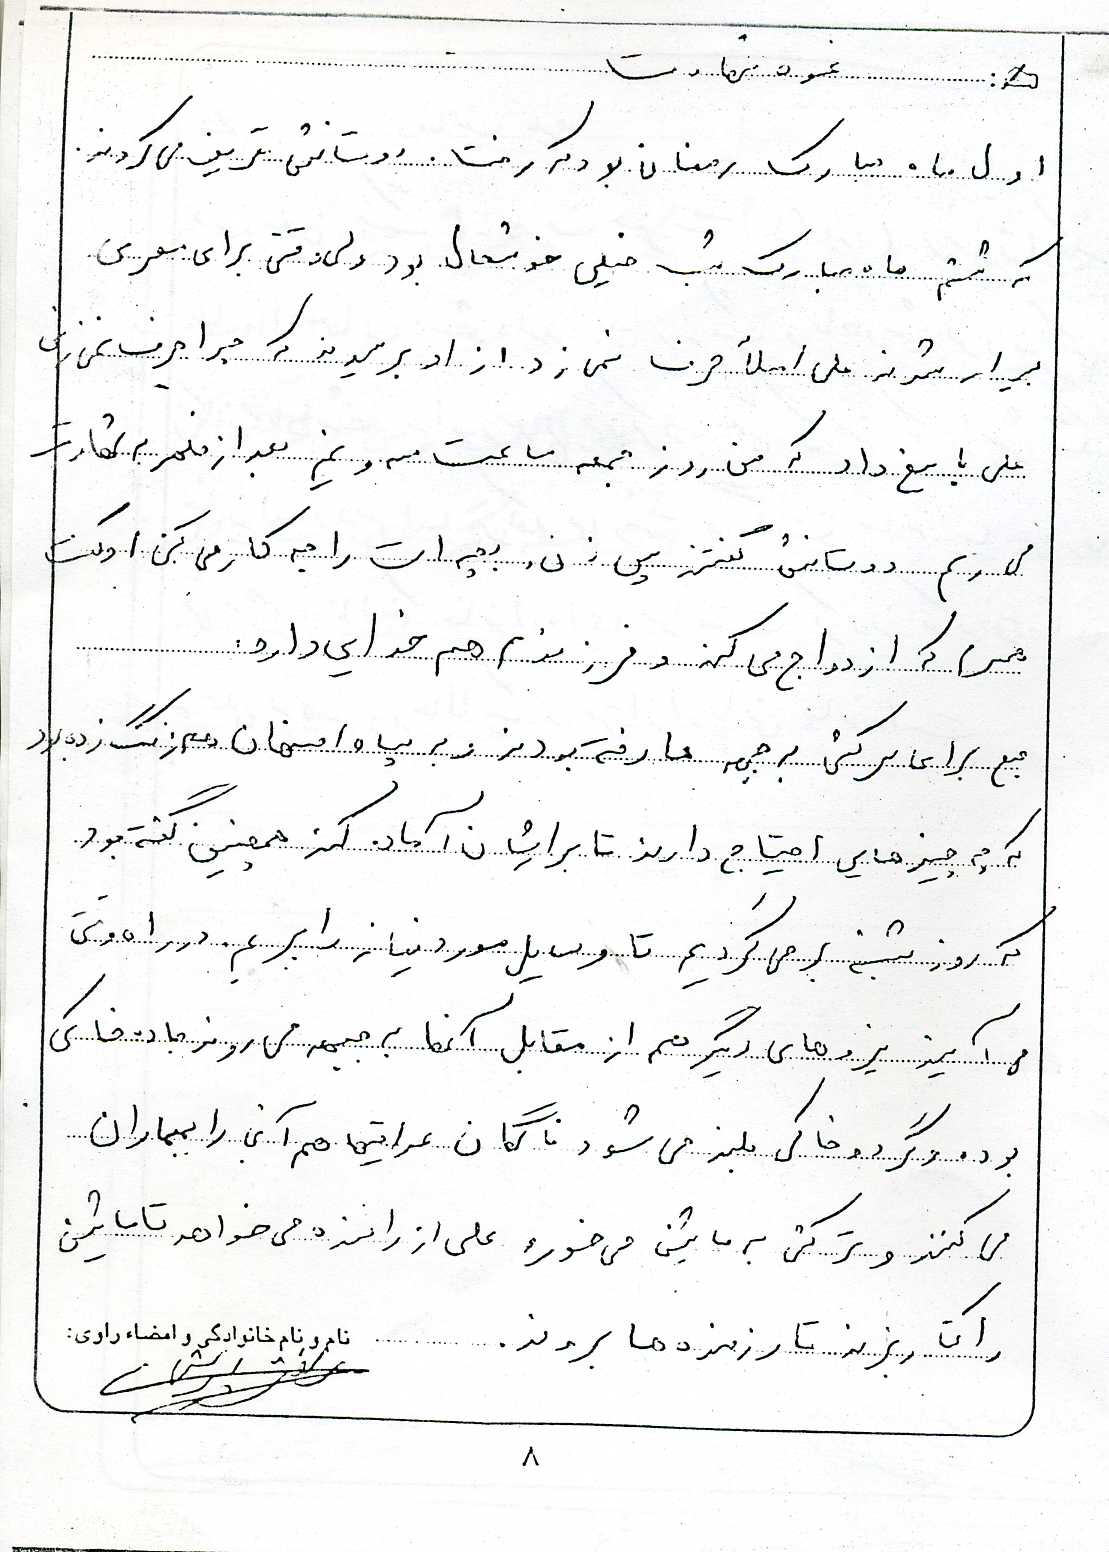 نحوه شهادت
اول ماه مبارک رمضان بود که رفت. دوستانش تعریف می کردند.
که ششم ماه مبارک شب خیلی خوشحال بود ولی وقتی برای سحری
بیدار شدند علی اصلاً حرف نمی زد از او پرسیدند که چرا حرف نمی زنی
علی پاسخ داد که من روز جمعه ساعت سه و نیم بعد از ظهر به شهادت
می رسم دوستانش گفتند پس زن و بچه ات را چه کار می کنی او گفت
همسرم که ازدواج می کند و فرزندم هم خدایی دارد.
صبح برای سرکشی به جبهه ها رفته بودند و به سپاه اصفهان هم زنگ زده بود
که چه چیزهایی احتیاج دارند تا برایشان آماده کنند همچنین گفته بود
که روز شنبه بر می گردیم تا وسایل مورد نیاز را ببریم. در راه وقتی
می آیند نیروهای دیگر هم از مقابل آنها به جبهه می روند جاده خاکی
بوده و گرد و خاکی بلند می شود ناگهان عراقیها هم آنجا را بمباران
می کنند و ترکش به ماشین می خورد علی از راننده می خواهد تا ماشین
را کنار بزند تا رزمنده ها بروند.
نام و نام خانوادگی و امضاء راوی:
۸